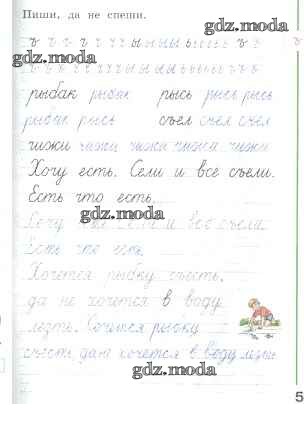 Пиши, да не спеши.
gdz.moda
ъ ъ ъ ъ ч ч ч ы ы ы ы ь ь ь ь ъ ъ ъ
gdz.moda
рыбак рыбак рысь рысь рысь
рыбак рысь съел съел съел
чижи чижи чижи чижи чижи
Хочу есть. Сели и все съели.
Есть что есть.
gdz.moda
Хочу есть. Сели и все съели.
Есть что есть.
Хочется рыбку съесть,
да не хочется в воду
gdz.moda
лезть. Хочется рыбку
съесть, да не хочется в воду лезть
gdz.moda
5